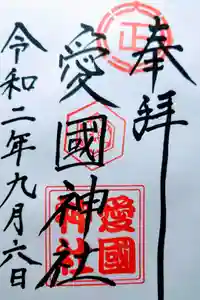 奉拝
愛國神社
令和二年九月六日
正
愛國
神社